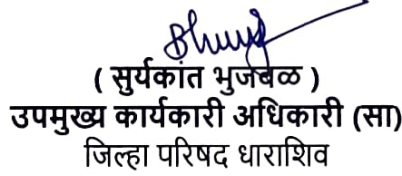 ( सुर्यकांत भुजबळ )
उपमुख्य कार्यकारी अधिकारी (सा)
जिल्हा परिषद धाराशिव